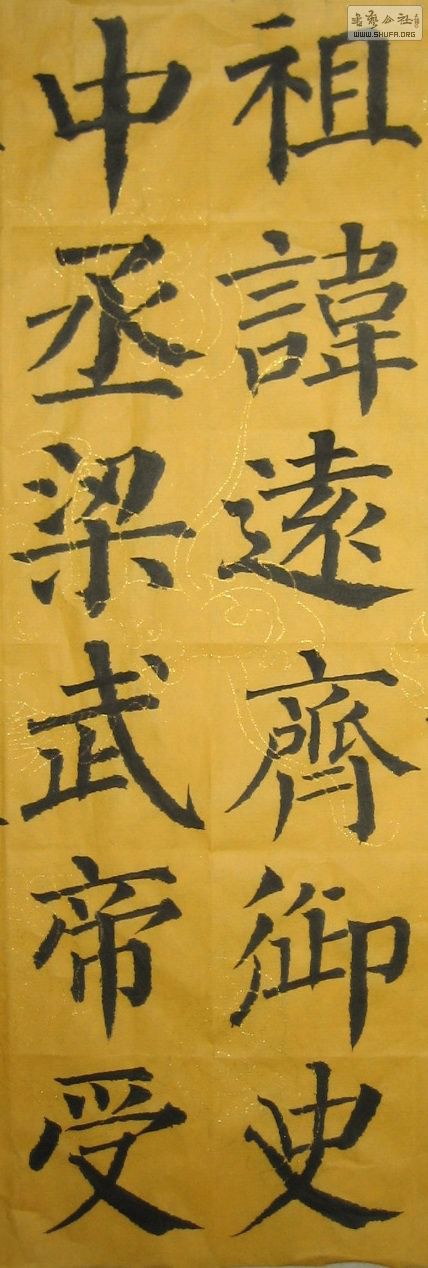 祖諱遠齊御史
中丞梁武帝受
書藝公社
WWW.SHUFA.ORG